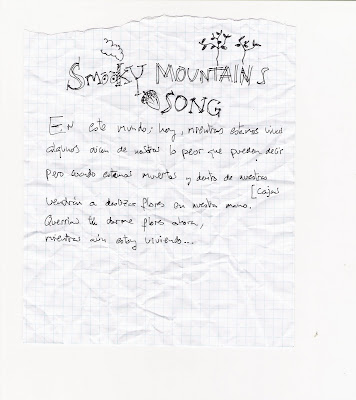 SMOOKY MOUNTAINS
SONG
EN este mundo, hoy, mientras estamos vivos
algunos dicen de nosotros lo peor que pueden decir
pero cuando estemos muertos y dentro de nuestras
[cajas
vendrán a deslizar flores en nuestra mano,
Querrías tú darme flores ahora,
mientras aún estoy viviendo...